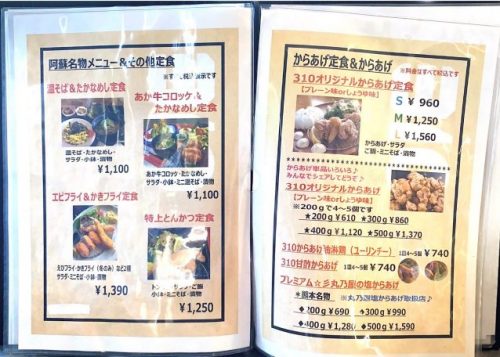 阿蘇名物メニュー&その他定食
温そば&たかなめし定食
温そば・たかなめし・
サラダ・小鉢・漬物
¥1,100
あか牛コロッケ&
たかなめし定食
あか牛コロッケ・たかなめし・
サラダ・小鉢・ミニ温そば・漬物
¥1,100
エビフライ&かきフライ定食
エビフライ・かきフライ(冬のみ)など2種
サラダ・ミニそば・小鉢・漬物
¥1,390
特上とんかつ定食
サラダ・ご飯
小鉢・ミニそば・漬物
¥1,250
からあげ定食&からあげ
※料金はすべて税込です
310オリジナルからあげ定食
【プレーン味orしょうゆ味】
S ¥ 960
M ¥1,250
L ¥1,560
からあげ・サラダ
ご飯・ミニそば・漬物
からあげ単品いろいろ♪
みんなでシェアしてどうぞ♪
310オリジナルからあげ
【プレーン味orしょうゆ味】
※200gで4~5個です
★200g ¥610 ★300g ¥860
★400g ¥1,120 ★500g ¥1,370
310からあげ油淋鶏(ユーリンチー)
1皿4~5個 ¥740
310甘酢からあげ
1皿4~5個 ¥740
プレミアム☆彡丸乃屋の塩からあげ
★熊本名物 ※丸乃屋塩からあげ取扱店♪
◆200g ¥690 ◆300g ¥990
◆400g ¥1,280 ◆500g ¥1,590